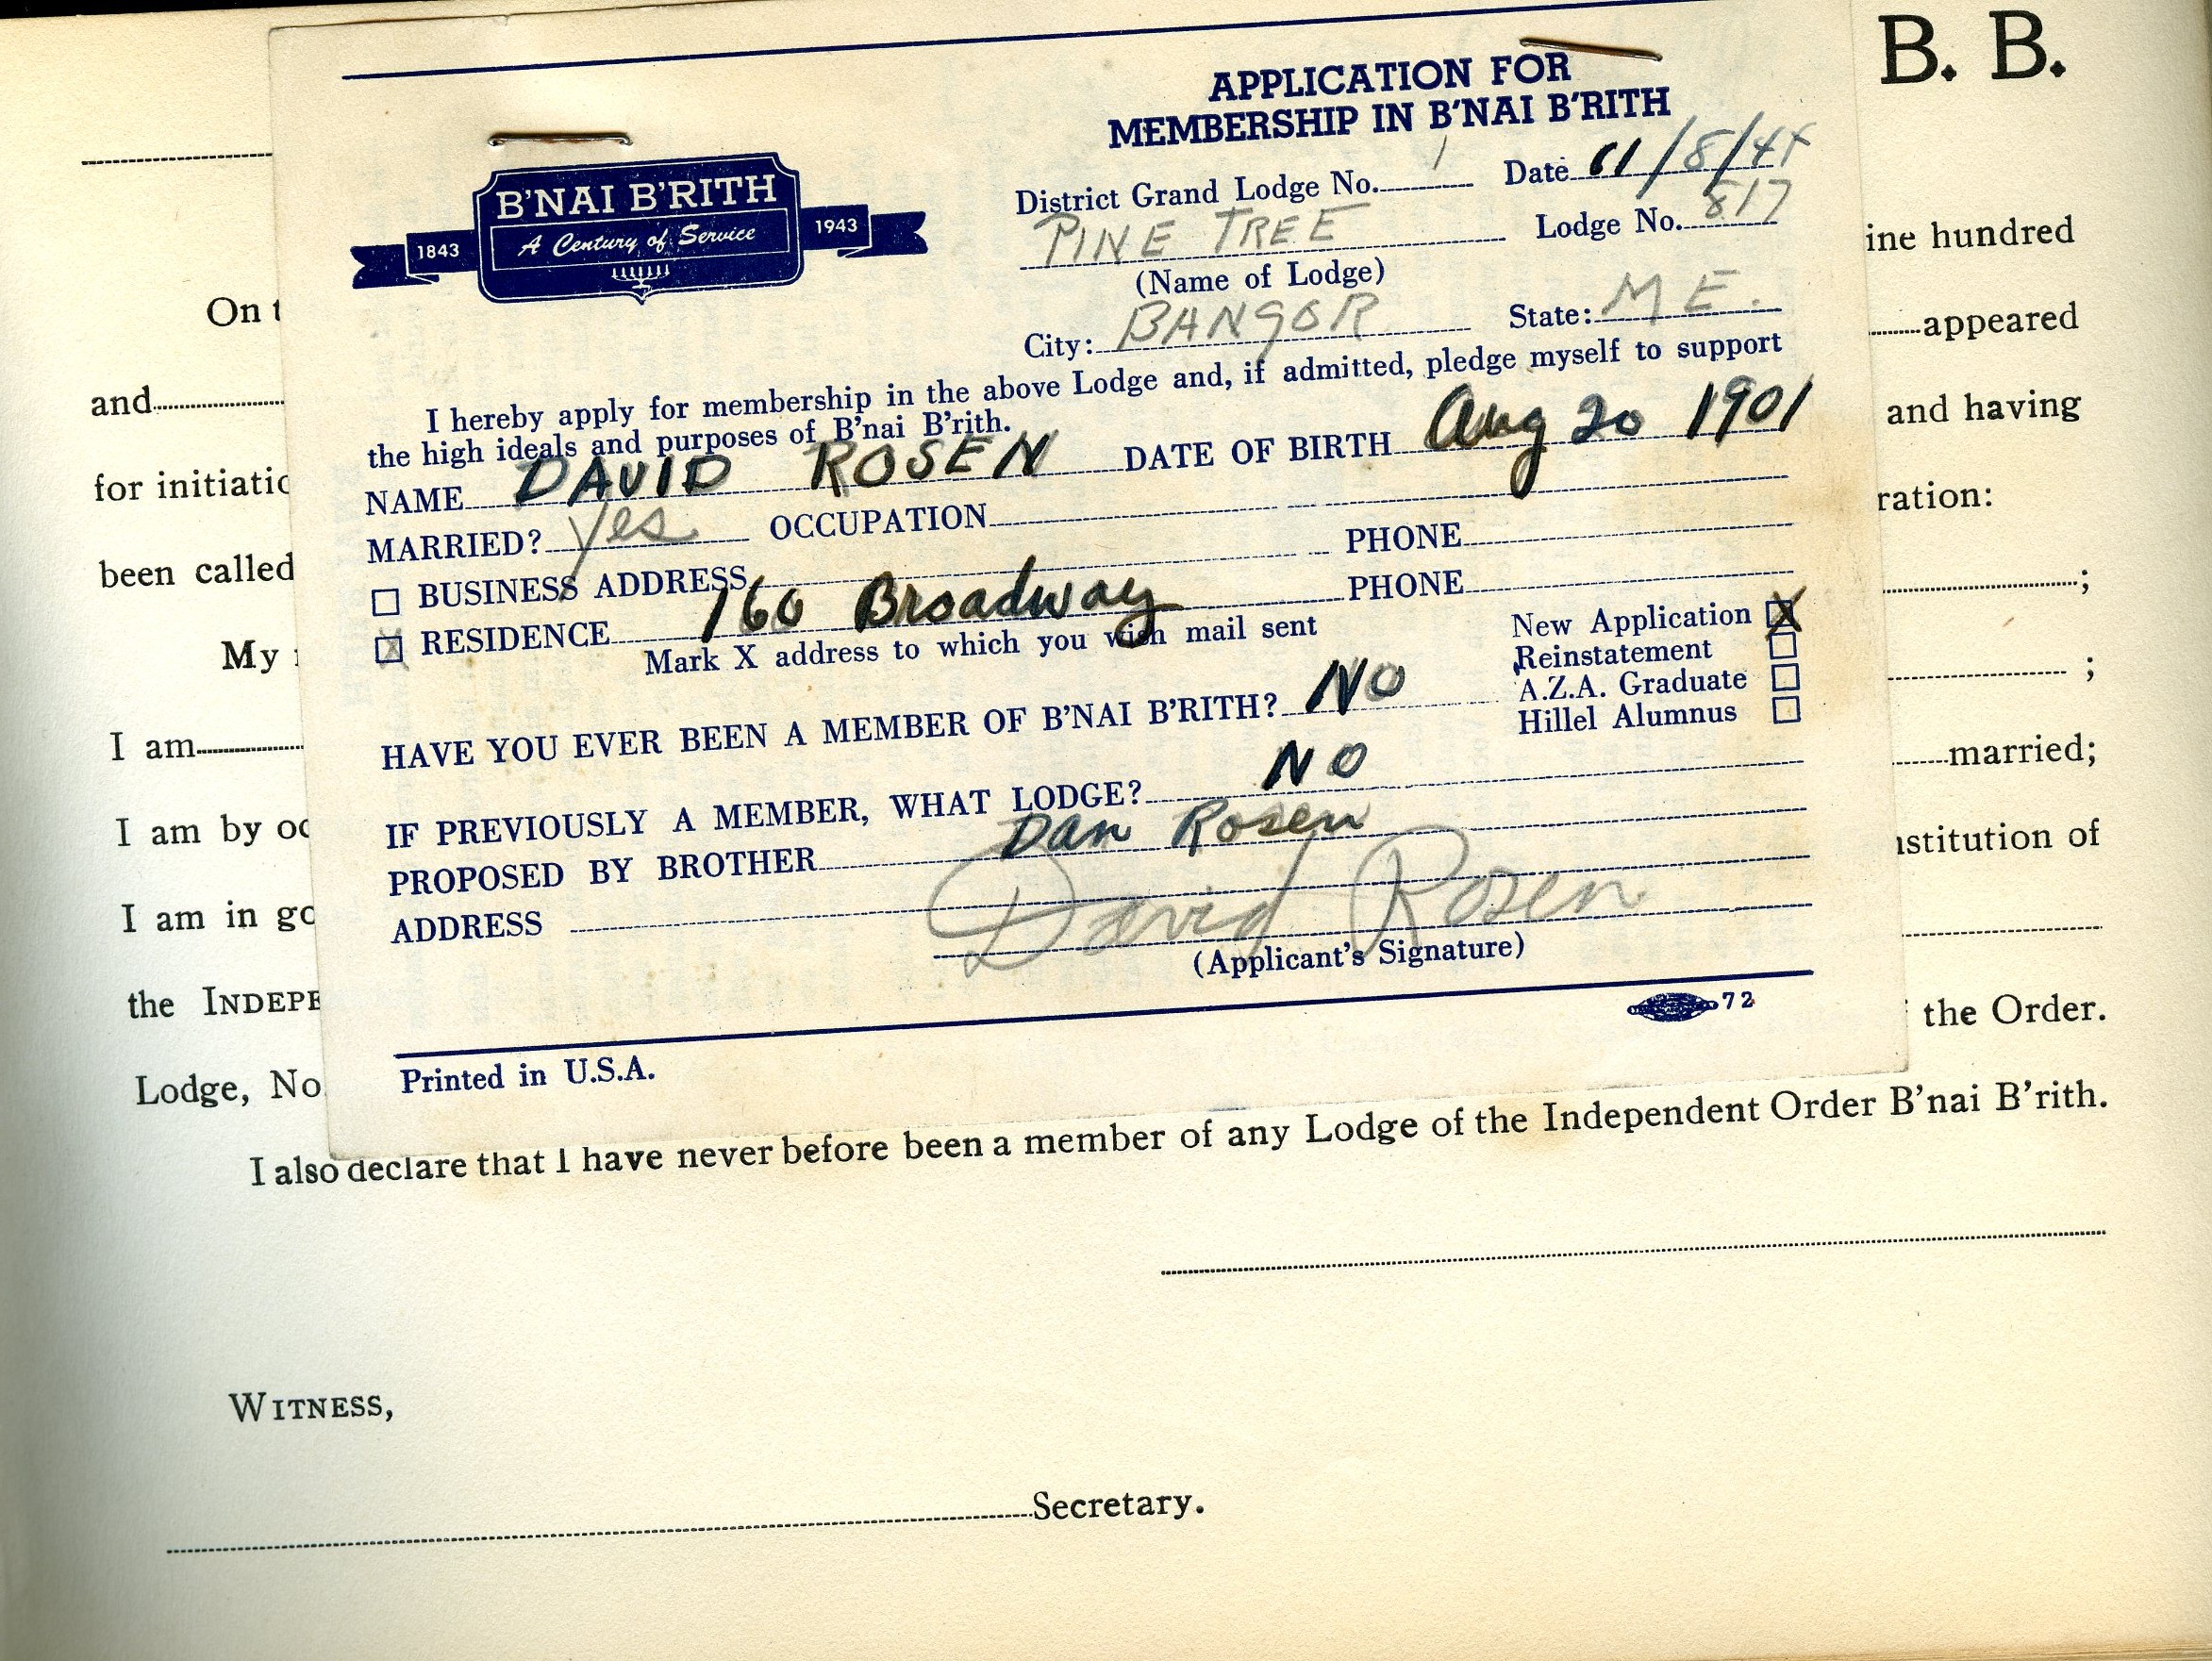 B. B.
APPLICATION FOR
MEMBERSHIP IN B'NAI B'RITH
B'NAI B'RITH
A Century of Service
1843
1943
District Grand Lodge No. 1 Date 11/8/44
PINE TREE Lodge No. 817
(Name of Lodge)
City: BANGOR State: ME.
I hereby apply for membership in the above Lodge and, if admitted, pledge myself to support
the high ideals and purposes of B'nai B'rith.
NAME DAVID ROSEN DATE OF BIRTH Aug 20 1901
MARRIED? Yes OCCUPATION
BUSINESS ADDRESS PHONE
RESIDENCE 160 Broadway PHONE
Mark X address to which you wish mail sent
New Application X
Reinstatement
A.Z.A. Graduate
Hillel Alumnus
HAVE YOU EVER BEEN A MEMBER OF B'NAI B'RITH? NO
IF PREVIOUSLY A MEMBER, WHAT LODGE? NO
PROPOSED BY BROTHER Dan Rosen
ADDRESS
David Rosen
(Applicant's Signature)
72
Printed in U.S.A.
ine hundred
On t
appeared
and
and having
for initiatio
ration:
been called
;
My
;
I am
married;
I am by oc
nstitution of
I am in go
the INDEPE
the Order.
Lodge, No.
I also declare that I have never before been a member of any Lodge of the Independent Order B'nai B'rith.
WITNESS,
Secretary.